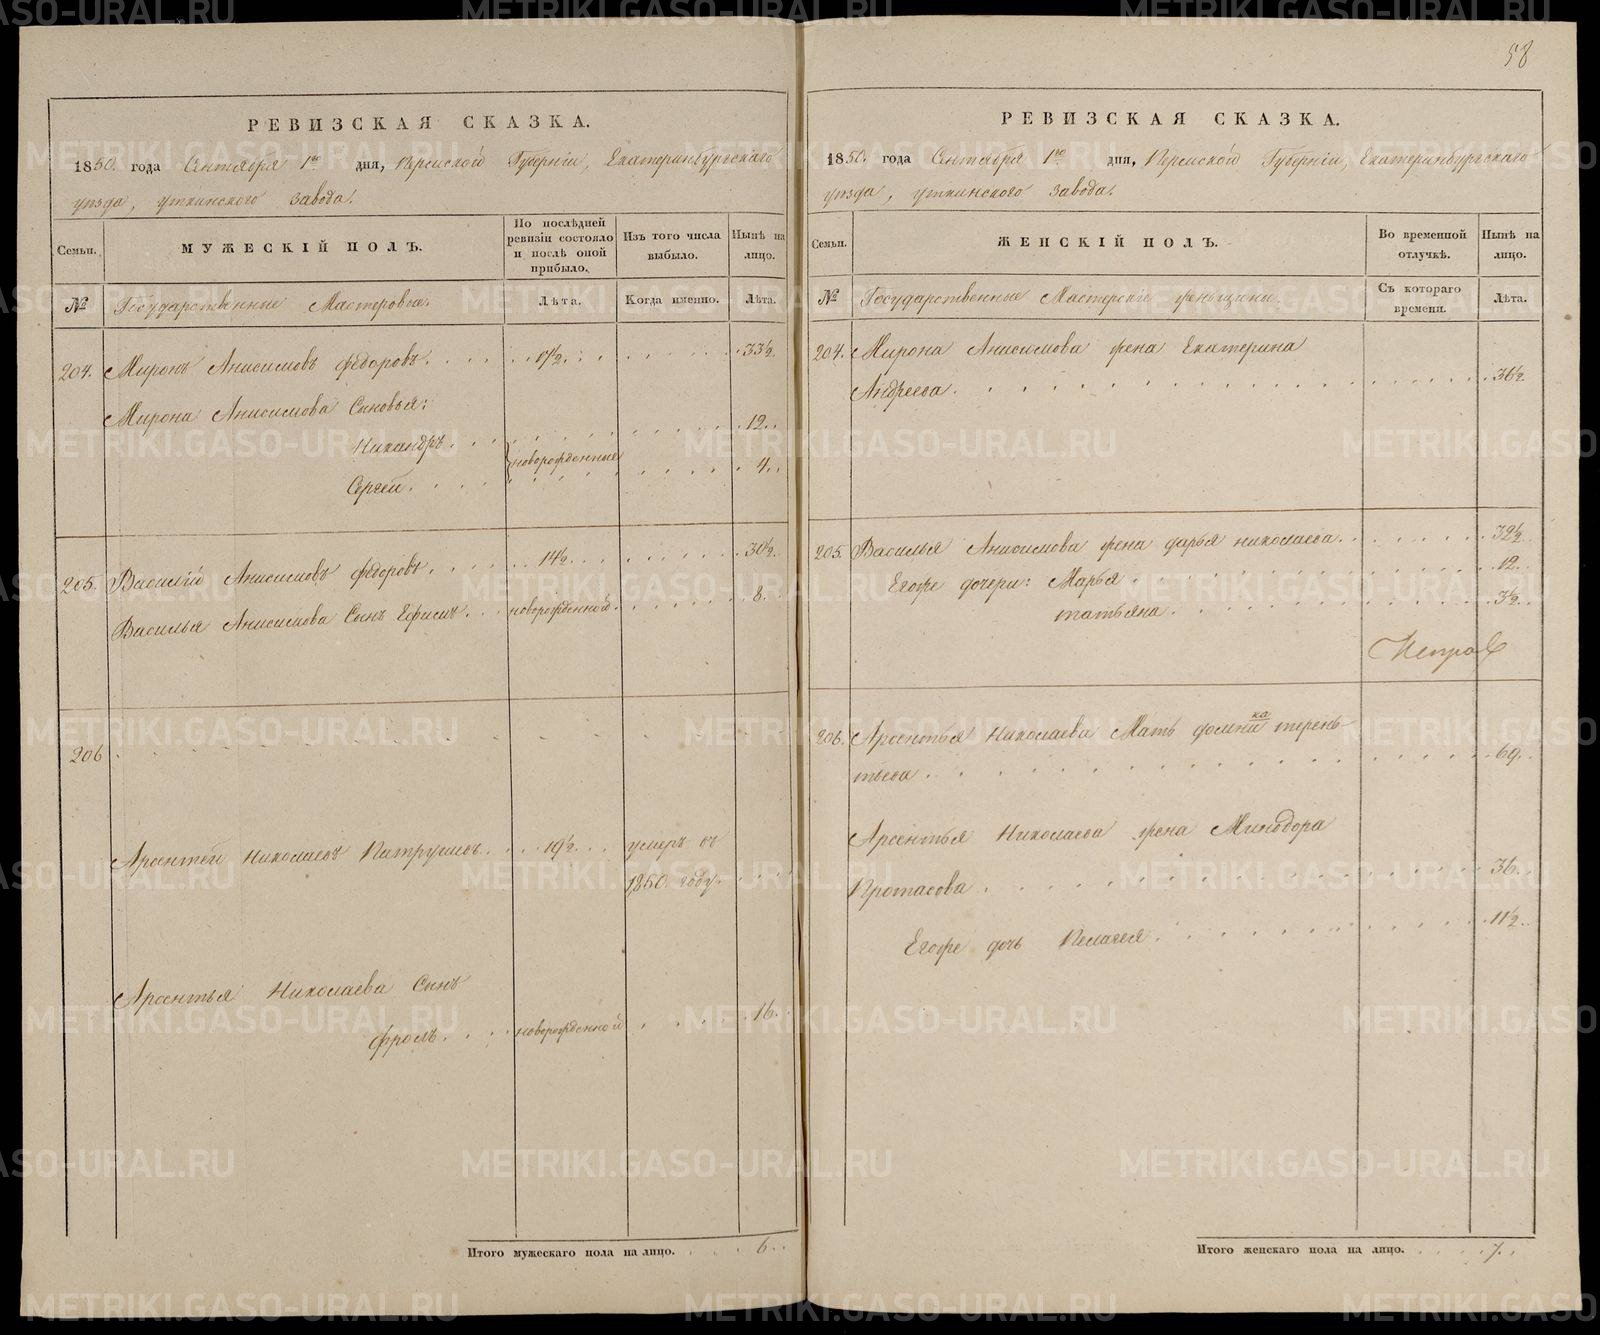 58
РЕВИЗСКАЯ СКАЗКА.
1850. года Сентября 1го дня, Пермской Губерніи, Екатеринбургскаго
уѣзда, уткинского завода.
Семьи.
МУЖЕСКІЙ ПОЛЪ.
По послѣдней ревизіи состояло и послѣ оной прибыло.
Изъ того числа выбыло.
Нынѣ на лицо.
№
Государственные Мастеровые.
Лѣта.
Когда именно.
Лѣта.
204. Миронъ Анисимовъ федоровъ. 17½. 33½.
Мирона Анисимова Сыновья:
Никандръ. 12.
новорожденные
Сергей. 4.
205. Василій Анисимовъ федоровъ. 14½. 30½.
Василья Анисимова Сынъ Ефимъ. новорожденной. 8.
206.
Арсентей Николаевъ Патрушевъ. 19½. умеръ въ
1850. году.
Арсентья Николаева Сынъ
фролъ. новорожденной 16.
Итого мужескаго пола на лицо. 6.
РЕВИЗСКАЯ СКАЗКА.
1850. года Сентября 1го дня, Пермской Губерніи, Екатеринбургскаго
уѣзда, уткинского завода.
Семьи.
ЖЕНСКІЙ ПОЛЪ.
Во временной отлучкѣ.
Нынѣ на лицо.
№
Государственные Мастерскіе женьщины.
Съ котораго времени.
Лѣта.
204. Мирона Анисимова жена Екатерина
Андреева. 36½.
205. Василья Анисимова жена дарья николаева. 32½.
Егоже дочери: Марья. 12.
татьяна. 3½.
206. Арсентья Николаева Мать домника терень
тьева. 69.
Арсентья Николаева жена Минодора
Протасова. 36.
Егоже дочь Пелагея. 11½.
Итого женскаго пола на лицо. 7.
METRIKI.GASO-URAL.RU